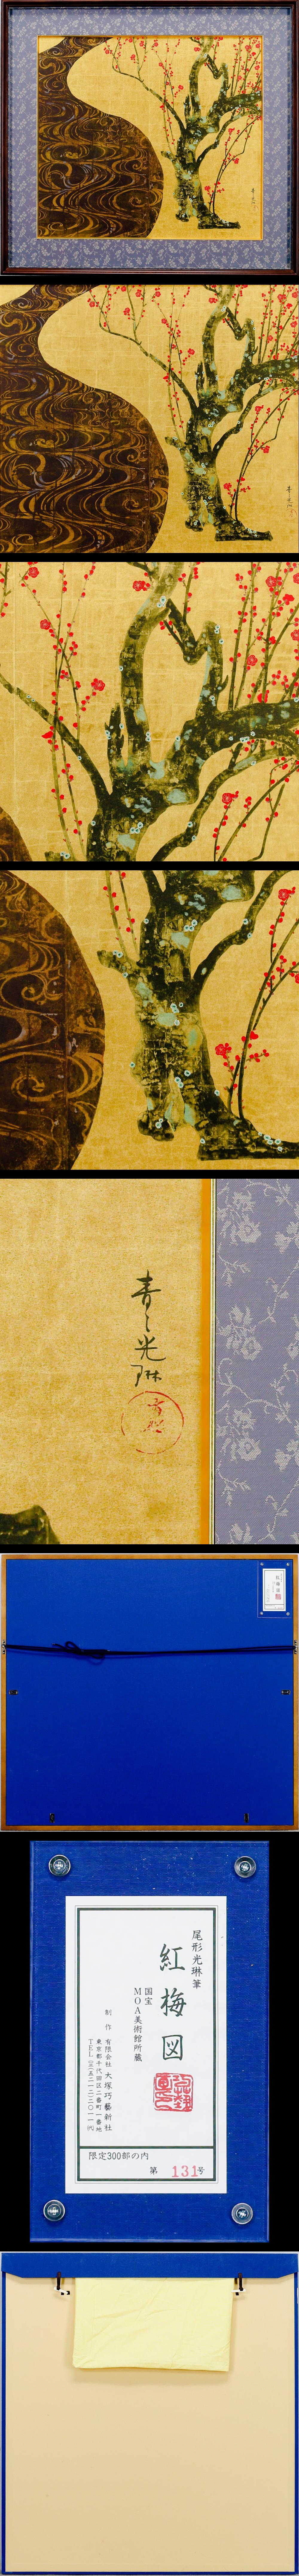 青々光琳
尾形光琳筆
紅梅図
国宝
MOA美術館所蔵
制作 有限会社 大塚巧藝新社
東京都千代田区二番町一番地
限定300部の内
第131号